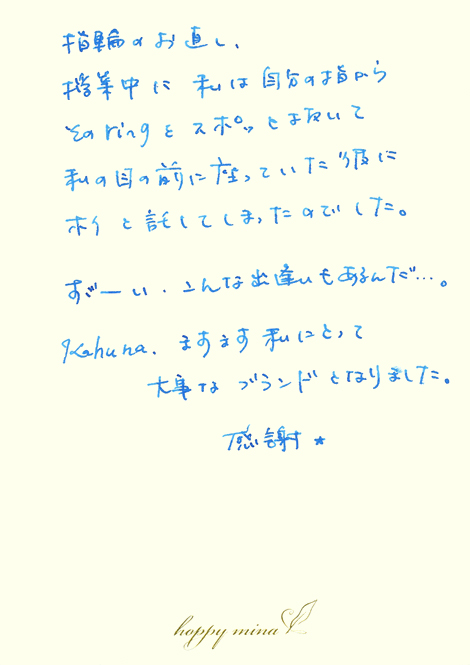 指輪のお直し、
授業中に 私は 自分の指から
その ring を スポッ とはずいて
私の目の前に座っていた彼に
ホイ と託してしまったのでした。
すごーい．こんな出逢いもあるんだ…。
Kahuna. ますます 私にとって
大事な ブランド となりました。
感謝★
hoppy mina